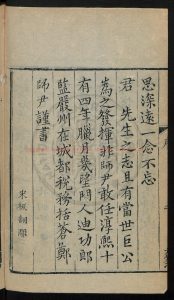 思深遠一念不忘
君　先生之志且有當世巨公
為之發揮非師尹敢任淳熈十
有四年臘月㡬望門人迪功郎
監嚴州在城都稅務括蒼鄭
師尹謹書